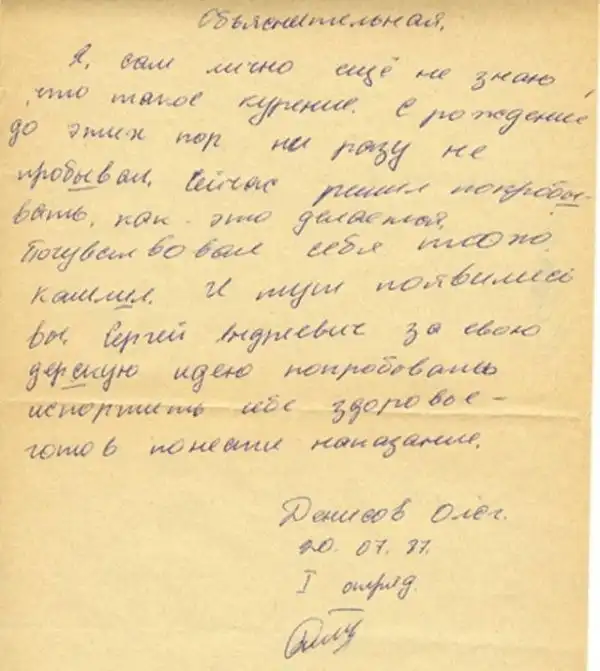 Объяснительная.
Я, сам лично ещё не знаю,
что такое курение. С рождения
до этих пор ни разу не
пробывал. Сейчас решил попробы-
вать, как это делается.
Почувствовал себя плохо.
Кашлил. И тут появились
вы, Сергей Андреевич за свою
дерскую идею попробовать
испортить себе здоровье –
готов понести наказание.
Денисов Олег.
20. 07. 87.
I отряд.